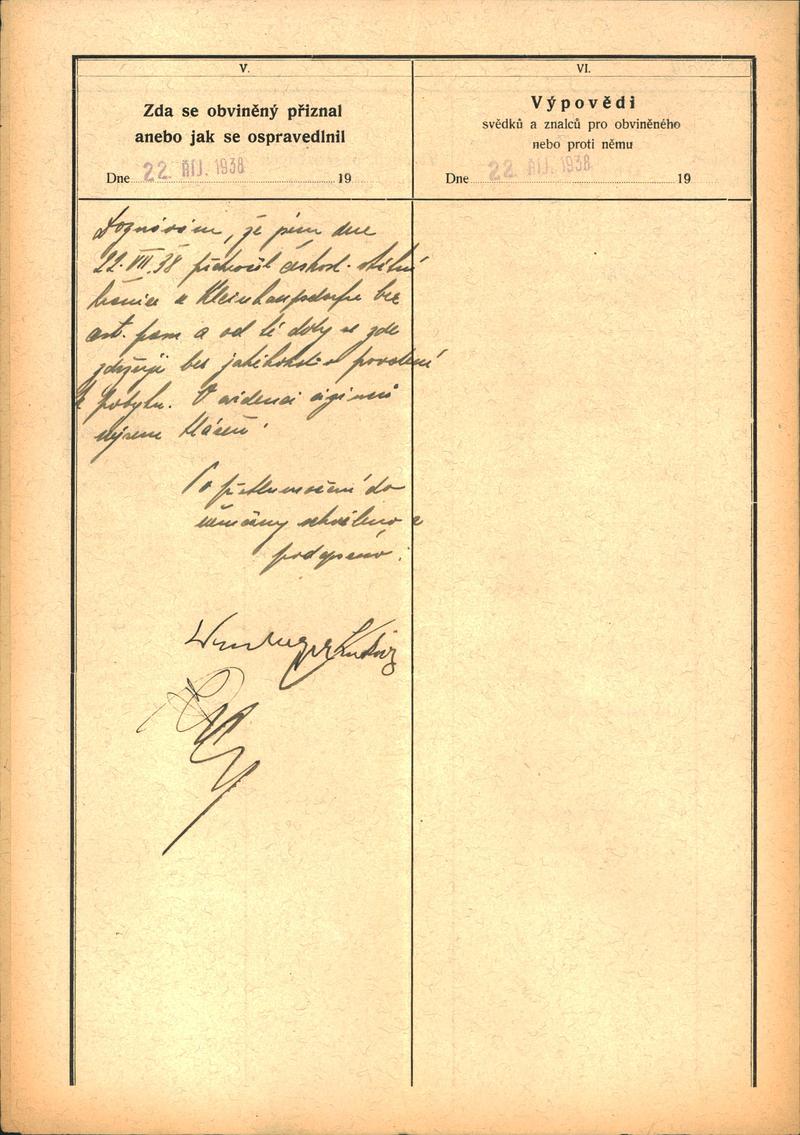 V.
Zda se obviněný přiznal
anebo jak se ospravedlnil
Dne 22. ŘÍJ. 1938 19
VI.
Výpovědi
svědků a znalců pro obviněného
nebo proti němu
Dne 22. ŘÍJ. 1938 19
Doznávám, že jsem dne
22. VIII. 38 překročil českosl. státní
hranice u bez
a od té doby se zde
zdržuji bez jakéhokoliv povolení
k pobytu. V evidenci cizinců
nejsem hlášen.
Po přetlumočení do
němčiny schváleno a
podepsáno: